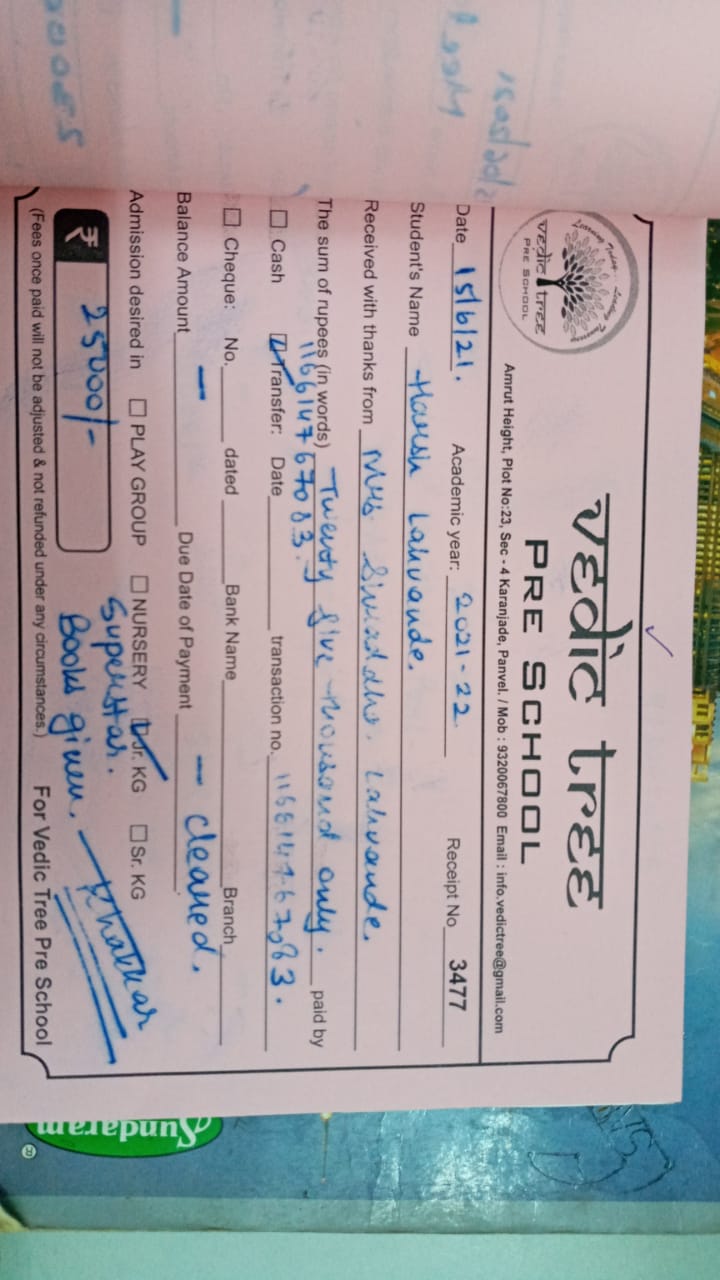 vedic tree
PRE SCHOOL
Learning Today... Leading Tomorrow
vedic tree
PRE SCHOOL
Amrut Height, Plot No:23, Sec - 4 Karanjade, Panvel. / Mob : 9320067800 Email : info.vedictree@gmail.com
Date 15/6/21. Academic year: 2021-22 Receipt No 3477
Student's Name Harsh Lahvande.
Received with thanks from Mrs Lahvande.
The sum of rupees (in words) Twenty five thousand only. paid by
116614767083.
Cash Transfer: Date transaction no. 116614767083.
Cheque: No. dated Bank Name Branch
Balance Amount — Due Date of Payment — cleared.
Admission desired in PLAY GROUP NURSERY Jr. KG Sr. KG
₹ 25000/- Superstar.
Books given.
(Fees once paid will not be adjusted & not refunded under any circumstances.) For Vedic Tree Pre School
Sundaram